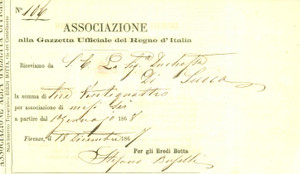 N.° 106
ASSOCIAZIONE
alla Gazzetta Ufficiale del Regno d'Italia
Riceviamo da S. E. La Sig. Duchessa
Di
la somma di Lire Ventiquattro
per associazione di mesi Sei
a partire dal 1 Gennajo 1868
Firenze, li Dicembre 1867
Per gli Eredi Botta
Stefano